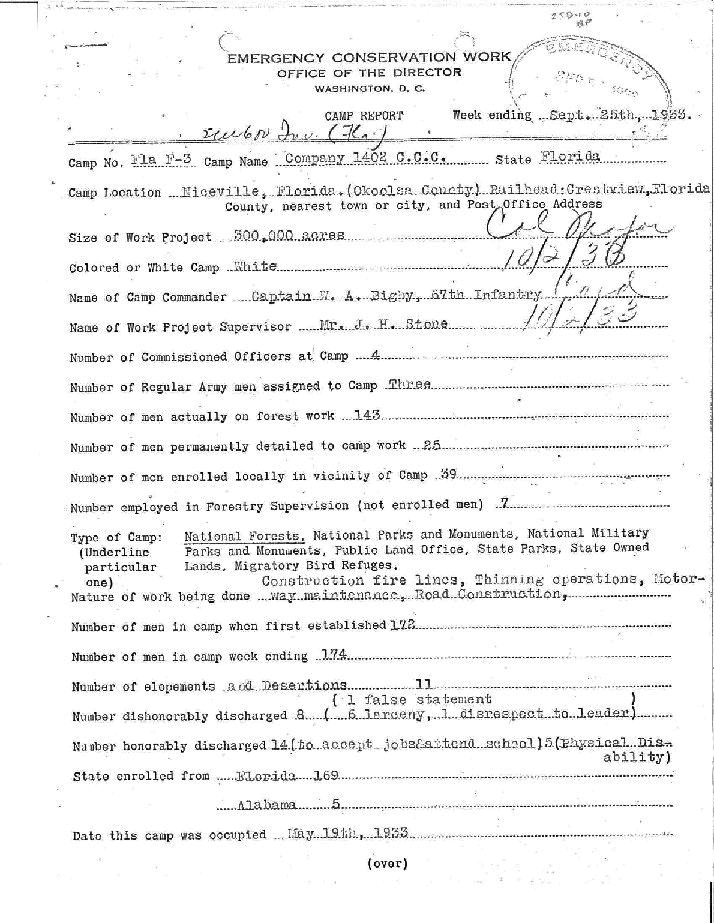 EMERGENCY CONSERVATION WORK
OFFICE OF THE DIRECTOR
WASHINGTON, D. C.
EMERGENCY
CAMP REPORT Week ending Sept. 25th, 1933.
(Fla)
Camp No. Fla F-3 Camp Name Company 1402 C.C.C. State Florida
Camp Location Niceville, Florida.(Okoolsa County) Railhead:Crestview,Florida
County, nearest town or city, and Post Office Address
Size of Work Project 300,000 acres
10/2/33
Colored or White Camp White
Name of Camp Commander Captain W. A. Bigby, 67th Infantry
Card
Name of Work Project Supervisor Mr. J. H. Stone
10/2/33
Number of Commissioned Officers at Camp 4
Number of Regular Army men assigned to Camp Three
Number of men actually on forest work 143
Number of men permanently detailed to camp work 25
Number of men enrolled locally in vicinity of Camp 39
Number employed in Forestry Supervision (not enrolled men) 7
Type of Camp: National Forests, National Parks and Monuments, National Military
(Underline Parks and Monuments, Public Land Office, State Parks, State Owned
particular Lands, Migratory Bird Refuges.
one) Construction fire lines, Thinning operations, Motor-
Nature of work being done way maintenance, Road Construction,
Number of men in camp when first established 172
Number of men in camp week ending 174
Number of elopements and Desertions 11
( 1 false statement )
Number dishonorably discharged 8 ( 6 larceny, 1 disrespect to leader)
Number honorably discharged 14(to accept jobs&attend school)5(Physical Dis-
ability)
State enrolled from Florida 169
Alabama 5
Date this camp was occupied May 19th, 1933
(over)